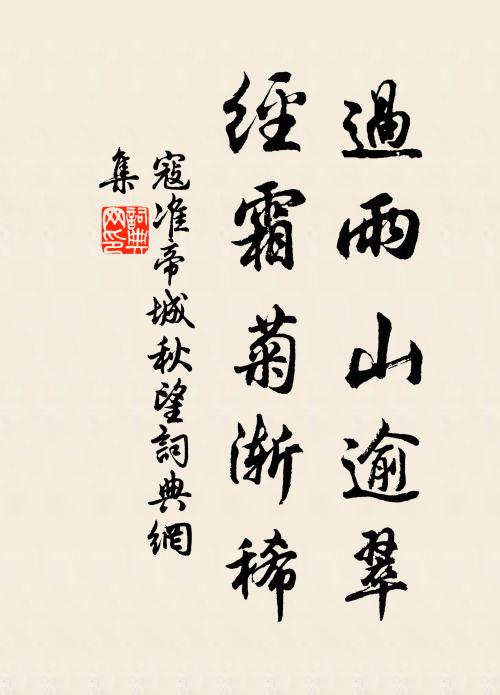 過雨山逾翠
經霜菊漸稀
寇准帝城秋望詞典網
集
詞典
网印